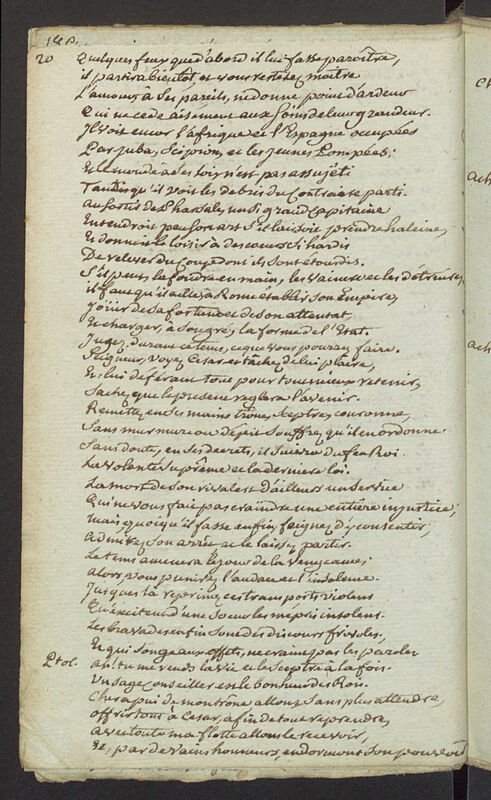 20 Quelques feux que d'abord il lui fasse paroître,
il partira bientot et vous resterez maître
L'amour, à Ses pareils, ne donne point d'ardeur
Qui ne cede aisement aux Soins de leur grandeur.
Il voit encor l'afrique et l'Espagne occupées
Par juba, Scipion, et les jeunes Pompées;
Et le monde à Ses loix n'est pas assujéti
Tandis qu'il voit les debris du Contraire parti.
Au Sortir de Pharsale un Si grand Capitaine
Entendroit peu Son art S'il laissoit prendre haleine,
Et donnoit le loisir à des coeurs Si hardis
De relever du Coup dont ils Sont étourdis.
S'il peut, la foudre en main, les vaincre et les détruire,
il faut qu'il aille, à Rome établir Son Empire,
Jouir de Sa fortune et de Son attentat,
Et changer, à Son gré, la forme de l'Etat.
Jugez, durant ce tems, ce que vous pourrez faire.
Seigneur, voyez Cesar, et tachez de lui plaire,
Et lui deferant tout pour tout mieux retenir,
Sachez que le present reglera l'avenir.
Remettez en Ses mains trône, Sceptre, couronne,
Sans murmure ou dépit Souffrez qu'il en ordonne.
Sans doute, en Ses decrets, il Suivra du feu Roi
La volonté Suprême et la derniere loi.
La mort de Son rival est d'ailleurs un Service
Qui ne vous fait pas craindre une entiere injustice;
mais quoiqu'il fasse enfin, feignez d'y consentir,
Admirez Son arrêt et le laissez partir.
Le tems amenera le jour de la vengeance;
alors, vous punirez l'audace et l'insolence.
Jusques là reprimez ces transports violens
Qu'excitent d'une Soeur les mépris insolens.
Les bravades enfin Sont des discours frivoles,
Et qui Songe aux effets, ne craint pas les paroles
Ptol. ah! tu me rends la vie et le Sceptre à la fois.
Un Sage Conseiller est le bonheur des Rois.
Cher apui de mon trône, allons, Sans plus attendre,
offrir tout à Cesar, afin de tout reprendre,
avec toute ma flotte allons le recevoir,
Et, par de vains honneurs, endormons Son pouvoir